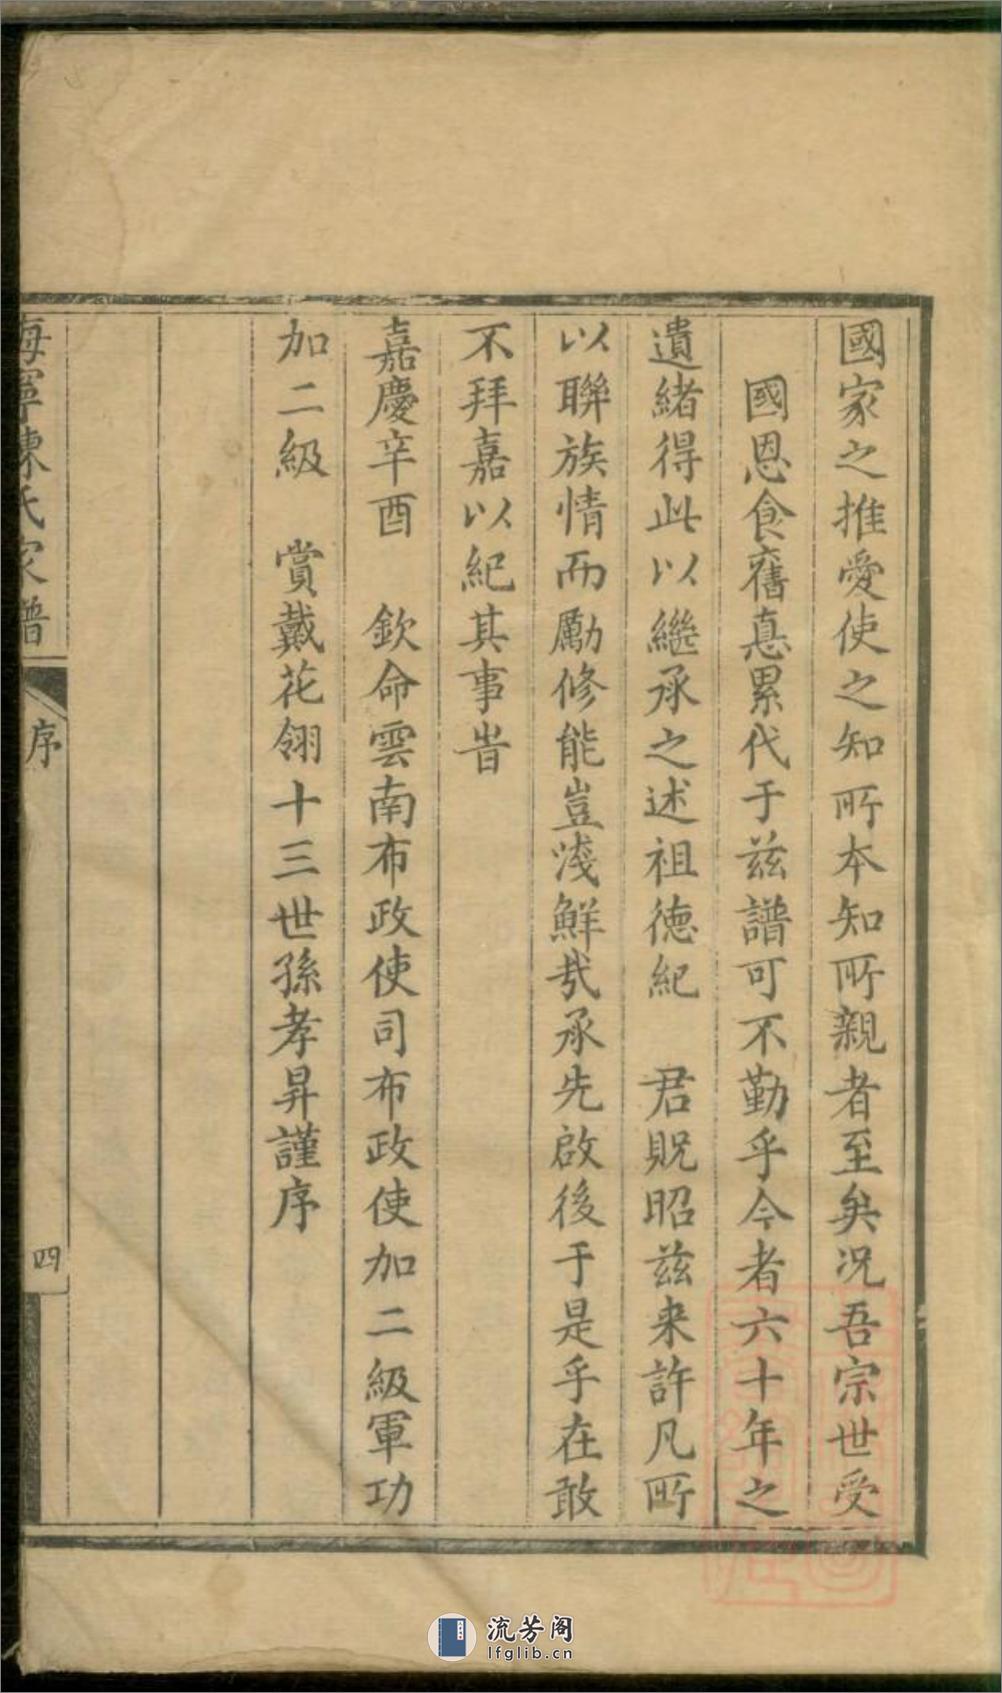 國家之推愛使之知所本知所親者至矣况吾宗世受
國恩食舊悳累代于兹譜可不勤乎今者六十年之
遺緒得此以繼承之述祖德紀　君貺昭兹来許凡所
以聯族情而勵修能豈淺鮮㢤承先啟後于是乎在敢
不拜嘉以紀其事旹
嘉慶辛酉　欽命雲南布政使司布政使加二級軍功
加二級　賞戴花翎十三世孫孝昇謹序
海寧陳氏家譜
序
四
流芳阁
lfglib.cn